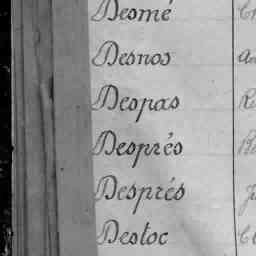 Desmé
Desnos
Despas
Després
Després
Destoc